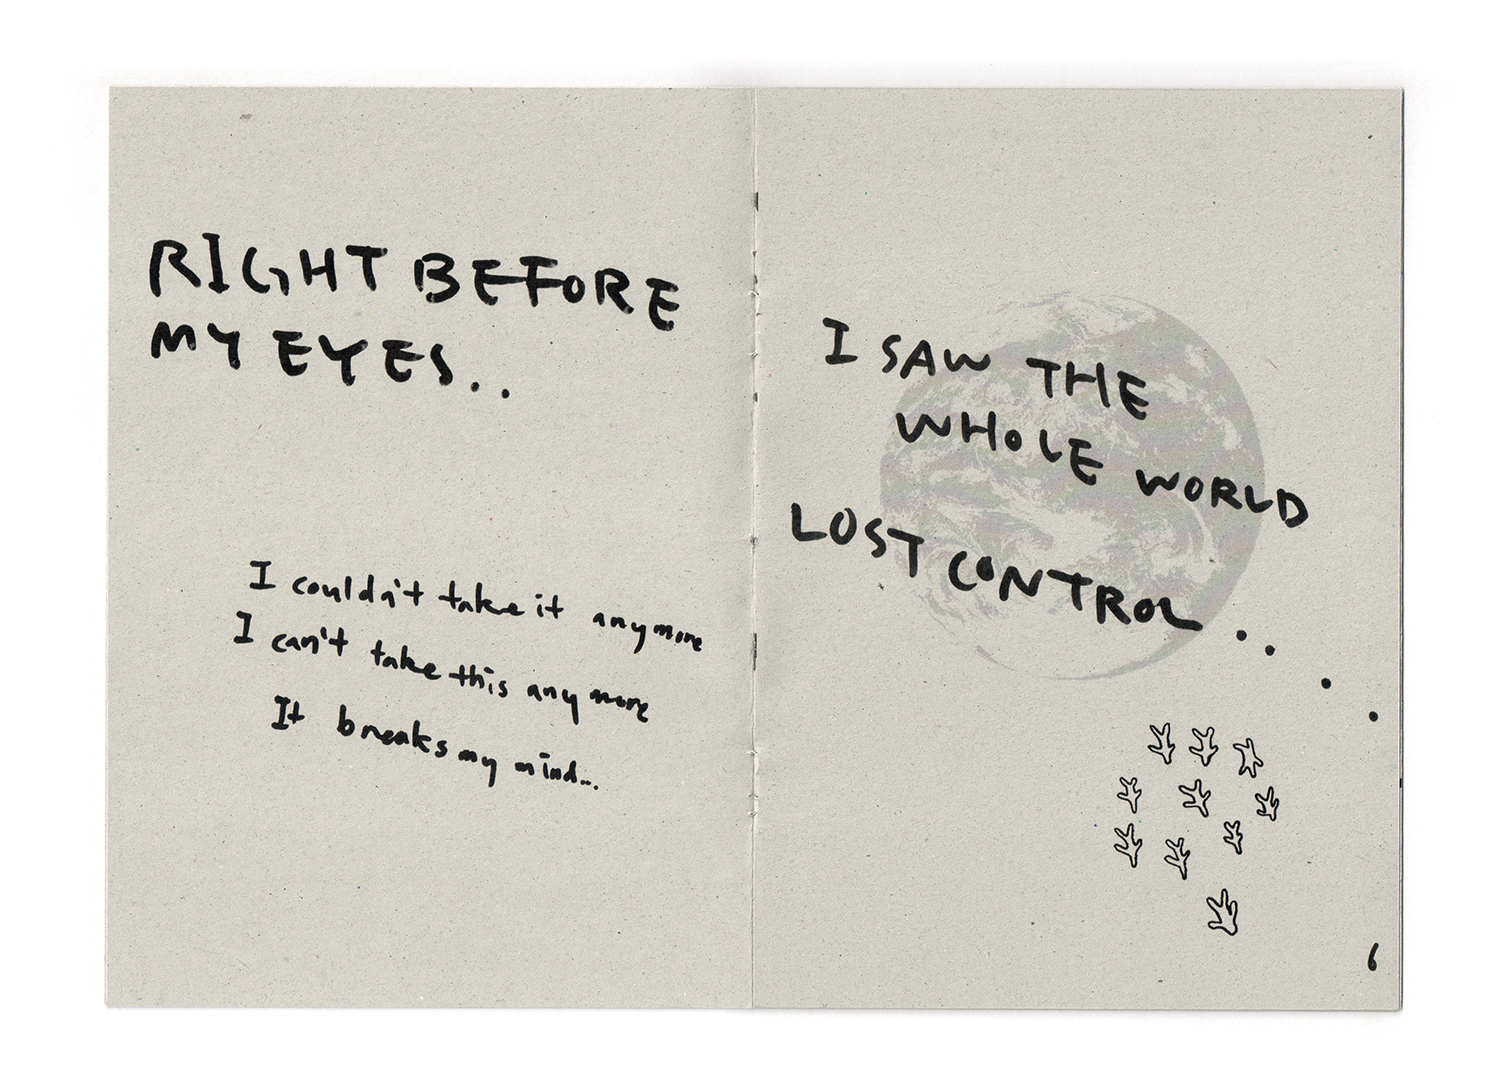 RIGHT BEFORE
MY EYES..
I couldn't take it anymore
I can't take this anymore
It breaks my mind...
I SAW THE
WHOLE WORLD
LOST CONTROL....
6